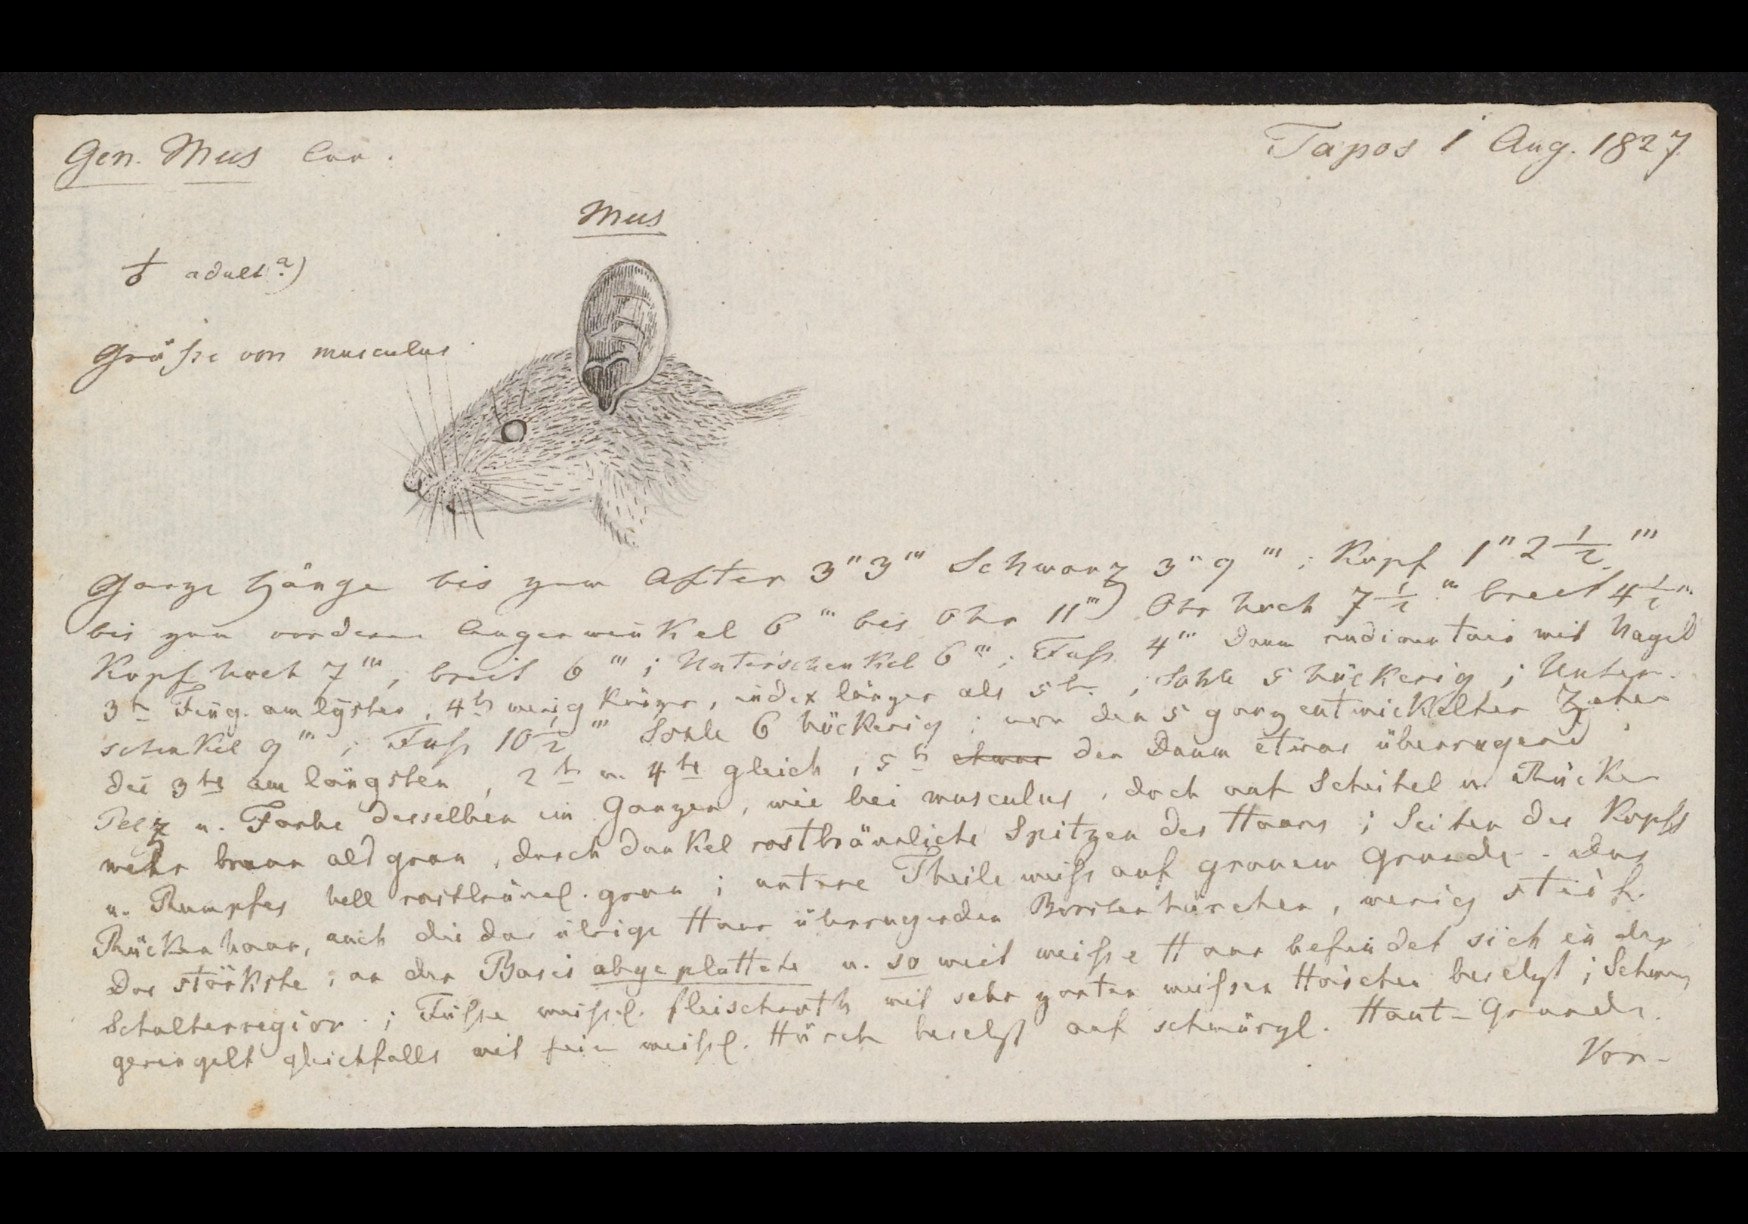 Gen. Mus Cuv.
Tapos 1 Aug. 1827.
Mus
♂ adult. a)
Größe von musculus.
Ganze Länge bis zum After 3" 3''' Schwanz 3" 9''' ; Kopf 1" 2 1/2'''
bis zum vorderen Augenwinkel 6''' bis Ohr 11''') Ohr hoch 7 1/2''' breit 4 1/2'''
Kopf hoch 7''', breit 6''' ; Unterschenkel 6''' ; Fuß 4''' Daum rudimentair mit Nagel
3tr Fing. am lgsten, 4tr wenig kürzer, index länger als 5tr ; Sohle 5 höckerig ; Unter-
schenkel 9''' ; Fuß 10 1/2''' Sohle 6 höckerig ; von den 5 ganz entwickelten Zehen
die 3te am längsten, 2t u. 4te gleich, 5t etwas den Daum etwas überragend
Pelz u. Farbe desselben im Ganzen, wie bei musculus, doch auf Scheitel u. Rücken
mehr braun als grau, durch dunkel rostbräunliche Spitzen des Haars ; Seiten des Kopfs
u. Rumpfes hell rostbräunl. grau ; untere Theile weiß auf grauem Grunde. Das
Rückenhaar, auch die das übrige Haar überragenden Borstenhärchen, wenig steif.
Das stärkste, an der Basis abgeplattete u. so weit weiße Haar befindet sich in der
Schulterregion ; Füße weißl. fleischroth mit sehr zarten weißen Härchen besetzt ; Schwanz
geringelt gleichfalls mit fein weißl. Härch besetzt auf schwärzl. Haut-Grunde.
Vor-